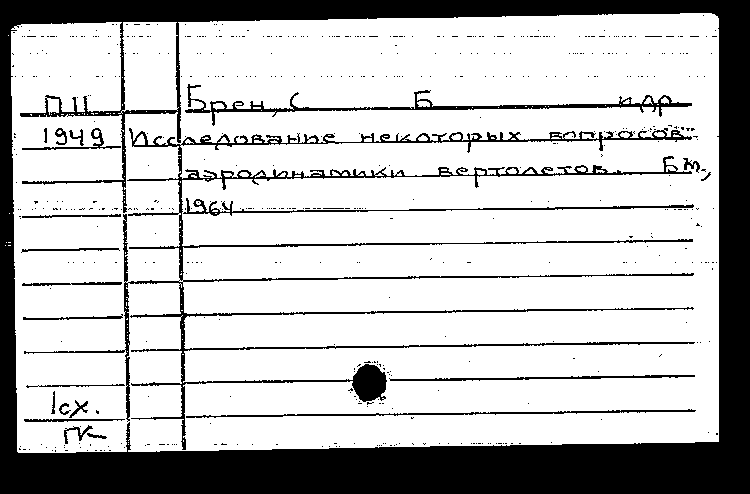 ПII Брен, С Б и др.
1949 Исследование некоторых вопросов
аэродинамики вертолетов. Б.м.,
1964
1сх.
ГК